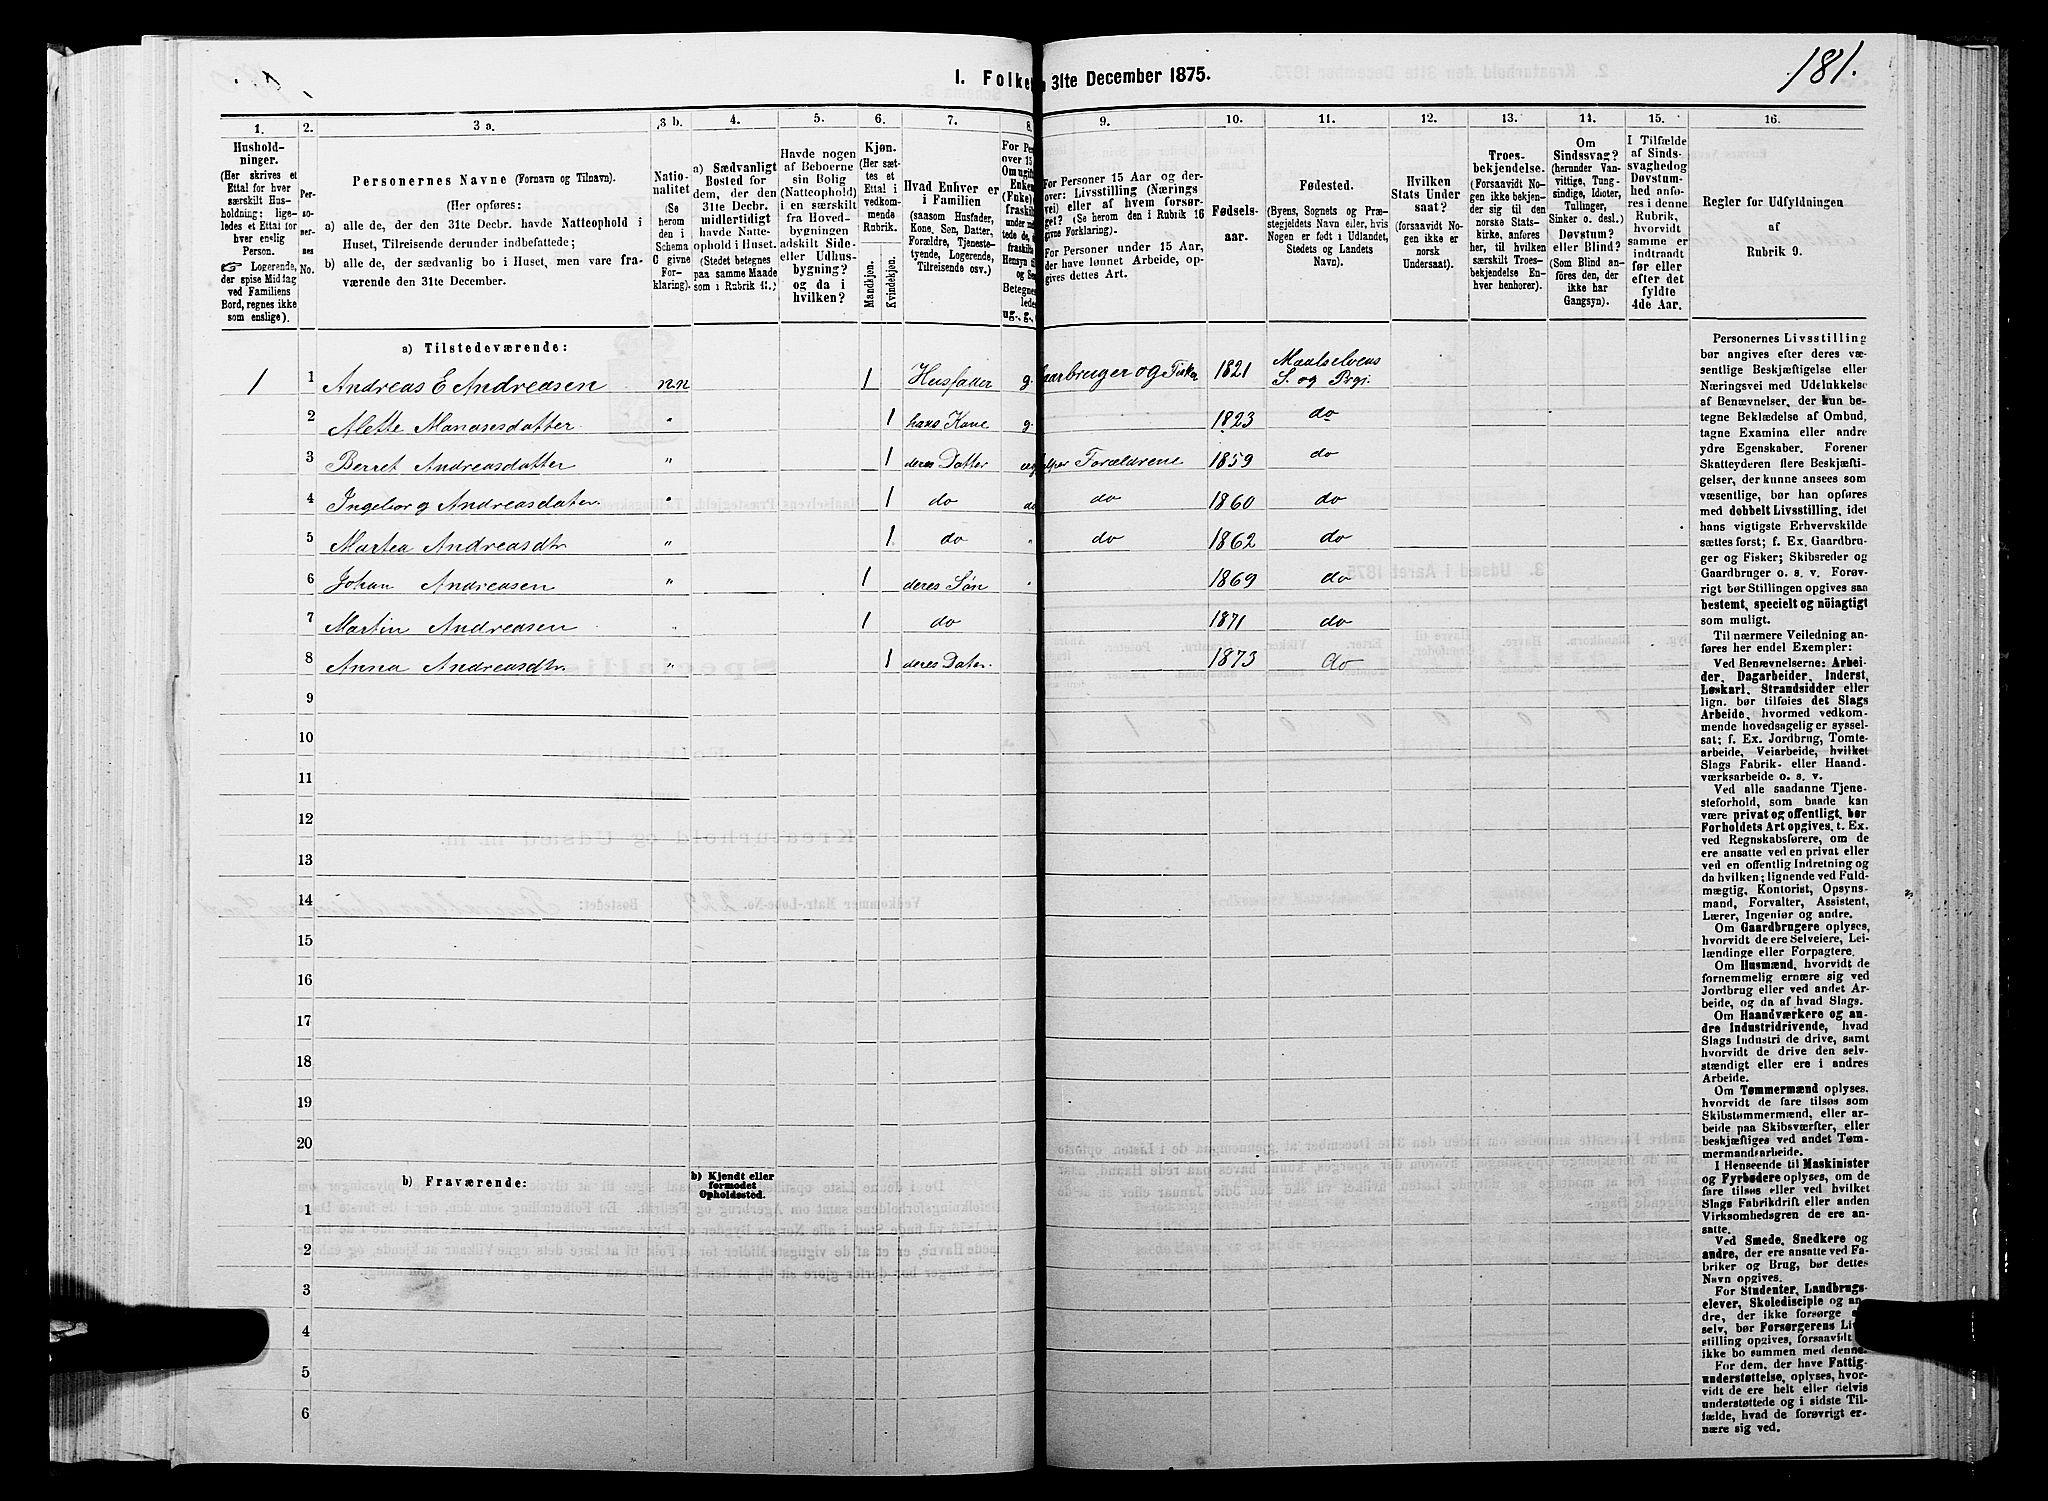 181.
I. Folke
n 31te December 1875.
1.
2.
3 a.
3 b.
4.
5.
6.
7.
8.
9.
10.
11.
12.
13.
14.
15.
16.
Hushold-
ninger.
(Her skrives et
Ettal for hver
særskilt Hus-
holdning; lige-
ledes et Ettal for
hver enslig
Person.
☞ Logerende,
der spise Middag
ved Familiens
Bord, regnes ikke
som enslige).
Per-
so-
ner-
nes
No.
Personernes Navne (Fornavn og Tilnavn).
(Her opføres:
a) alle de, der den 31te Decbr. havde Natteophold i
Huset, Tilreisende derunder indbefattede;
b) alle de, der sædvanlig bo i Huset, men vare fra-
værende den 31te December.
Natio-
nalitet
(Se
herom
den i
Schema
C givne
For-
klaring).
a) Sædvanligt
Bosted for
dem, der den
31te Decbr.
midlertidigt
havde Natte-
ophold i Huset.
(Stedet betegnes
paa samme Maade
som i Rubrik 11.)
Havde nogen
af Beboerne
sin Bolig
(Natteophold)
i en særskilt
fra Hoved-
bygningen
adskilt Side-
eller Udhus-
bygning?
og da i
hvilken?
Kjøn.
(Her sæt-
tes et
Ettal i
vedkom-
mende
Rubrik.
Mandkjøn.
Kvindekjøn.
Hvad Enhver er
i Familien
(saasom Husfader,
Kone, Søn, Datter,
Forældre, Tjeneste-
tyende, Logerende,
Tilreisende osv.)
For Per
over 15
Om ugift
Enken
(Enke)
fraskilt
under ind
tede de,
fraskilte
Hensyn ti
og Se
Betegnes
ledes
ug., g.,
For Personer 15 Aar og der-
over: Livsstilling (Nærings-
vei) eller af hvem forsør-
get? (Se herom den i Rubrik 16
givne Forklaring).
For Personer under 15 Aar,
der have lønnet Arbeide, op-
gives dettes Art.
Fødsels-
aar.
Fødested.
(Byens, Sognets og Præ-
stegjeldets Navn eller, hvis
Nogen er født i Udlandet,
Stedets og Landets
Navn).
Hvilken
Stats Under-
saat?
(forsaavidt No-
gen ikke er
norsk
Undersaat).
Troes-
bekjendelse.
(Forsaavidt No-
gen ikke bekjen-
der sig til den
norske Stats-
kirke, anføres
her, til hvilken
særskilt Troes-
bekjendelse En-
hver henhører).
Om
Sindssvag?
(herunder Van-
vittige, Tung-
sindige, Idioter,
Tullinger,
Sinker o. desl.)
Døvstum?
eller Blind?
(Som Blind an-
føres den, der
ikke har
Gangsyn).
I Tilfælde
af Sinds-
svaghedog
Døvstum-
hed anfø-
res i denne
Rubrik,
hvorvidt
samme er
indtraadt
før eller
efter det
fyldte
4de Aar.
Regler for Udfyldningen
af
Rubrik 9.
a) Tilstedeværende:
1 1 Andreas E Andreasen nn 1 Husfader g. aarbruger og Fisker 1821 Maalselvens
S. og Prgj.
2 Alette Manasesdatter " 1 hans Kone g. 1823 do
3 Berret Andreasdatter " 1 deres Datter Forældrene 1859 do
4 Ingeborg Andreasdater " 1 do do do 1860 do
5 Martea Andreasdtr " 1 do " do 1862 do
6 Johan Andreasen " 1 deres Søn " 1869 do
7 Martin Andreasen " 1 do 1871 do
8 Anna Andreasdtr. " 1 deres Dater. 1873 do
9
10
11
12
13
14
15
16
17
18
19
20
b) Fraværende:
b) Kjendt eller
formodet
Opholdssted.
1
2
3
4
5
6
Personernes Livsstilling
bør angives efter deres væ-
sentlige Beskjæftigelse eller
Næringsvei med Udelukkelse
af Benævnelser, der kun be-
tegne Beklædelse af Ombud,
tagne Examina eller andre
ydre Egenskaber. Forener
Skatteyderen flere Beskjæfti-
gelser, der kunne ansees som
væsentlige, bør han opføres
med dobbelt Livsstilling, idet
hans vigtigste Erhvervskilde
sættes først; f. Ex. Gaardbru-
ger og Fisker; Skibsreder og
Gaardbruger o. s. v. Forøv-
rigt bør Stillingen opgives saa
bestemt, specielt og nöiagtigt
som muligt.
Til nærmere Veiledning an-
føres her endel Exempler:
Ved Benævnelserne: Arbei-
der, Dagarbeider, Inderst,
Løskarl, Strandsidder eller
lign. bør tilføies det Slags
Arbeide, hvormed vedkom-
mende hovedsagelig er syssel-
sat; f. Ex. Jordbrug, Tomte-
arbeide, Veiarbeide, hvilket
Slags Fabrik- eller Haand-
værksarbeide o. s. v.
Ved alle saadanne Tjene-
steforhold, som baade kan
være privat og offentligt, bør
Forholdets Art opgives, t. Ex.
ved Regnskabsførere, om de
ere ansatte ved en privat eller
ved en offentlig Indretning og
da hvilken; lignende ved Fuld-
mægtig, Kontorist, Opsyns-
mand, Forvalter, Assistent,
Lærer, Ingeniør og andre.
Om Gaardbrugere oplyses,
hvorvidt de ere Selveiere, Lei-
lændinge eller Forpagtere.
Om Husmænd, hvorvidt de
fornemmelig ernære sig ved
Jordbrug eller ved andet Ar-
beide, og da af hvad Slags.
Om Haandværkere og an-
dre Industridrivende, hvad
Slags Industri de drive, samt
hvorvidt de drive den selv-
stændigt eller ere i andres
Arbeide.
Om Tømmermænd oplyses,
hvorvidt de fare tilsøs som
Skibstømmermænd, eller ar-
beide paa Skibsværfter, eller
beskjæftiges ved andet Tøm-
mermandsarbeide.
I Henseende til Maskinister
og Fyrbødere oplyses, om de
fare tilsøs eller ved hvilket
Slags Fabrikdrift eller anden
Virksomhedsgren de ere an-
satte.
Ved Smede, Snedkere og
andre, der ere ansatte ved Fa-
briker og Brug, bør dettes
Navn opgives.
For Studenter, Landbrugs-
elever, Skoledisciple og an-
dre, der ikke forsørge
selv, bør Forsørgerens
stilling opgives, forsaavidt
ikke bo sammen med denne.
For dem, der have Fattig-
understøttelse, oplyses, hvor-
vidt de ere helt eller delvis
understøttede og i sidste Til-
fælde, hvad de forøvrigt er-
nære sig ved.